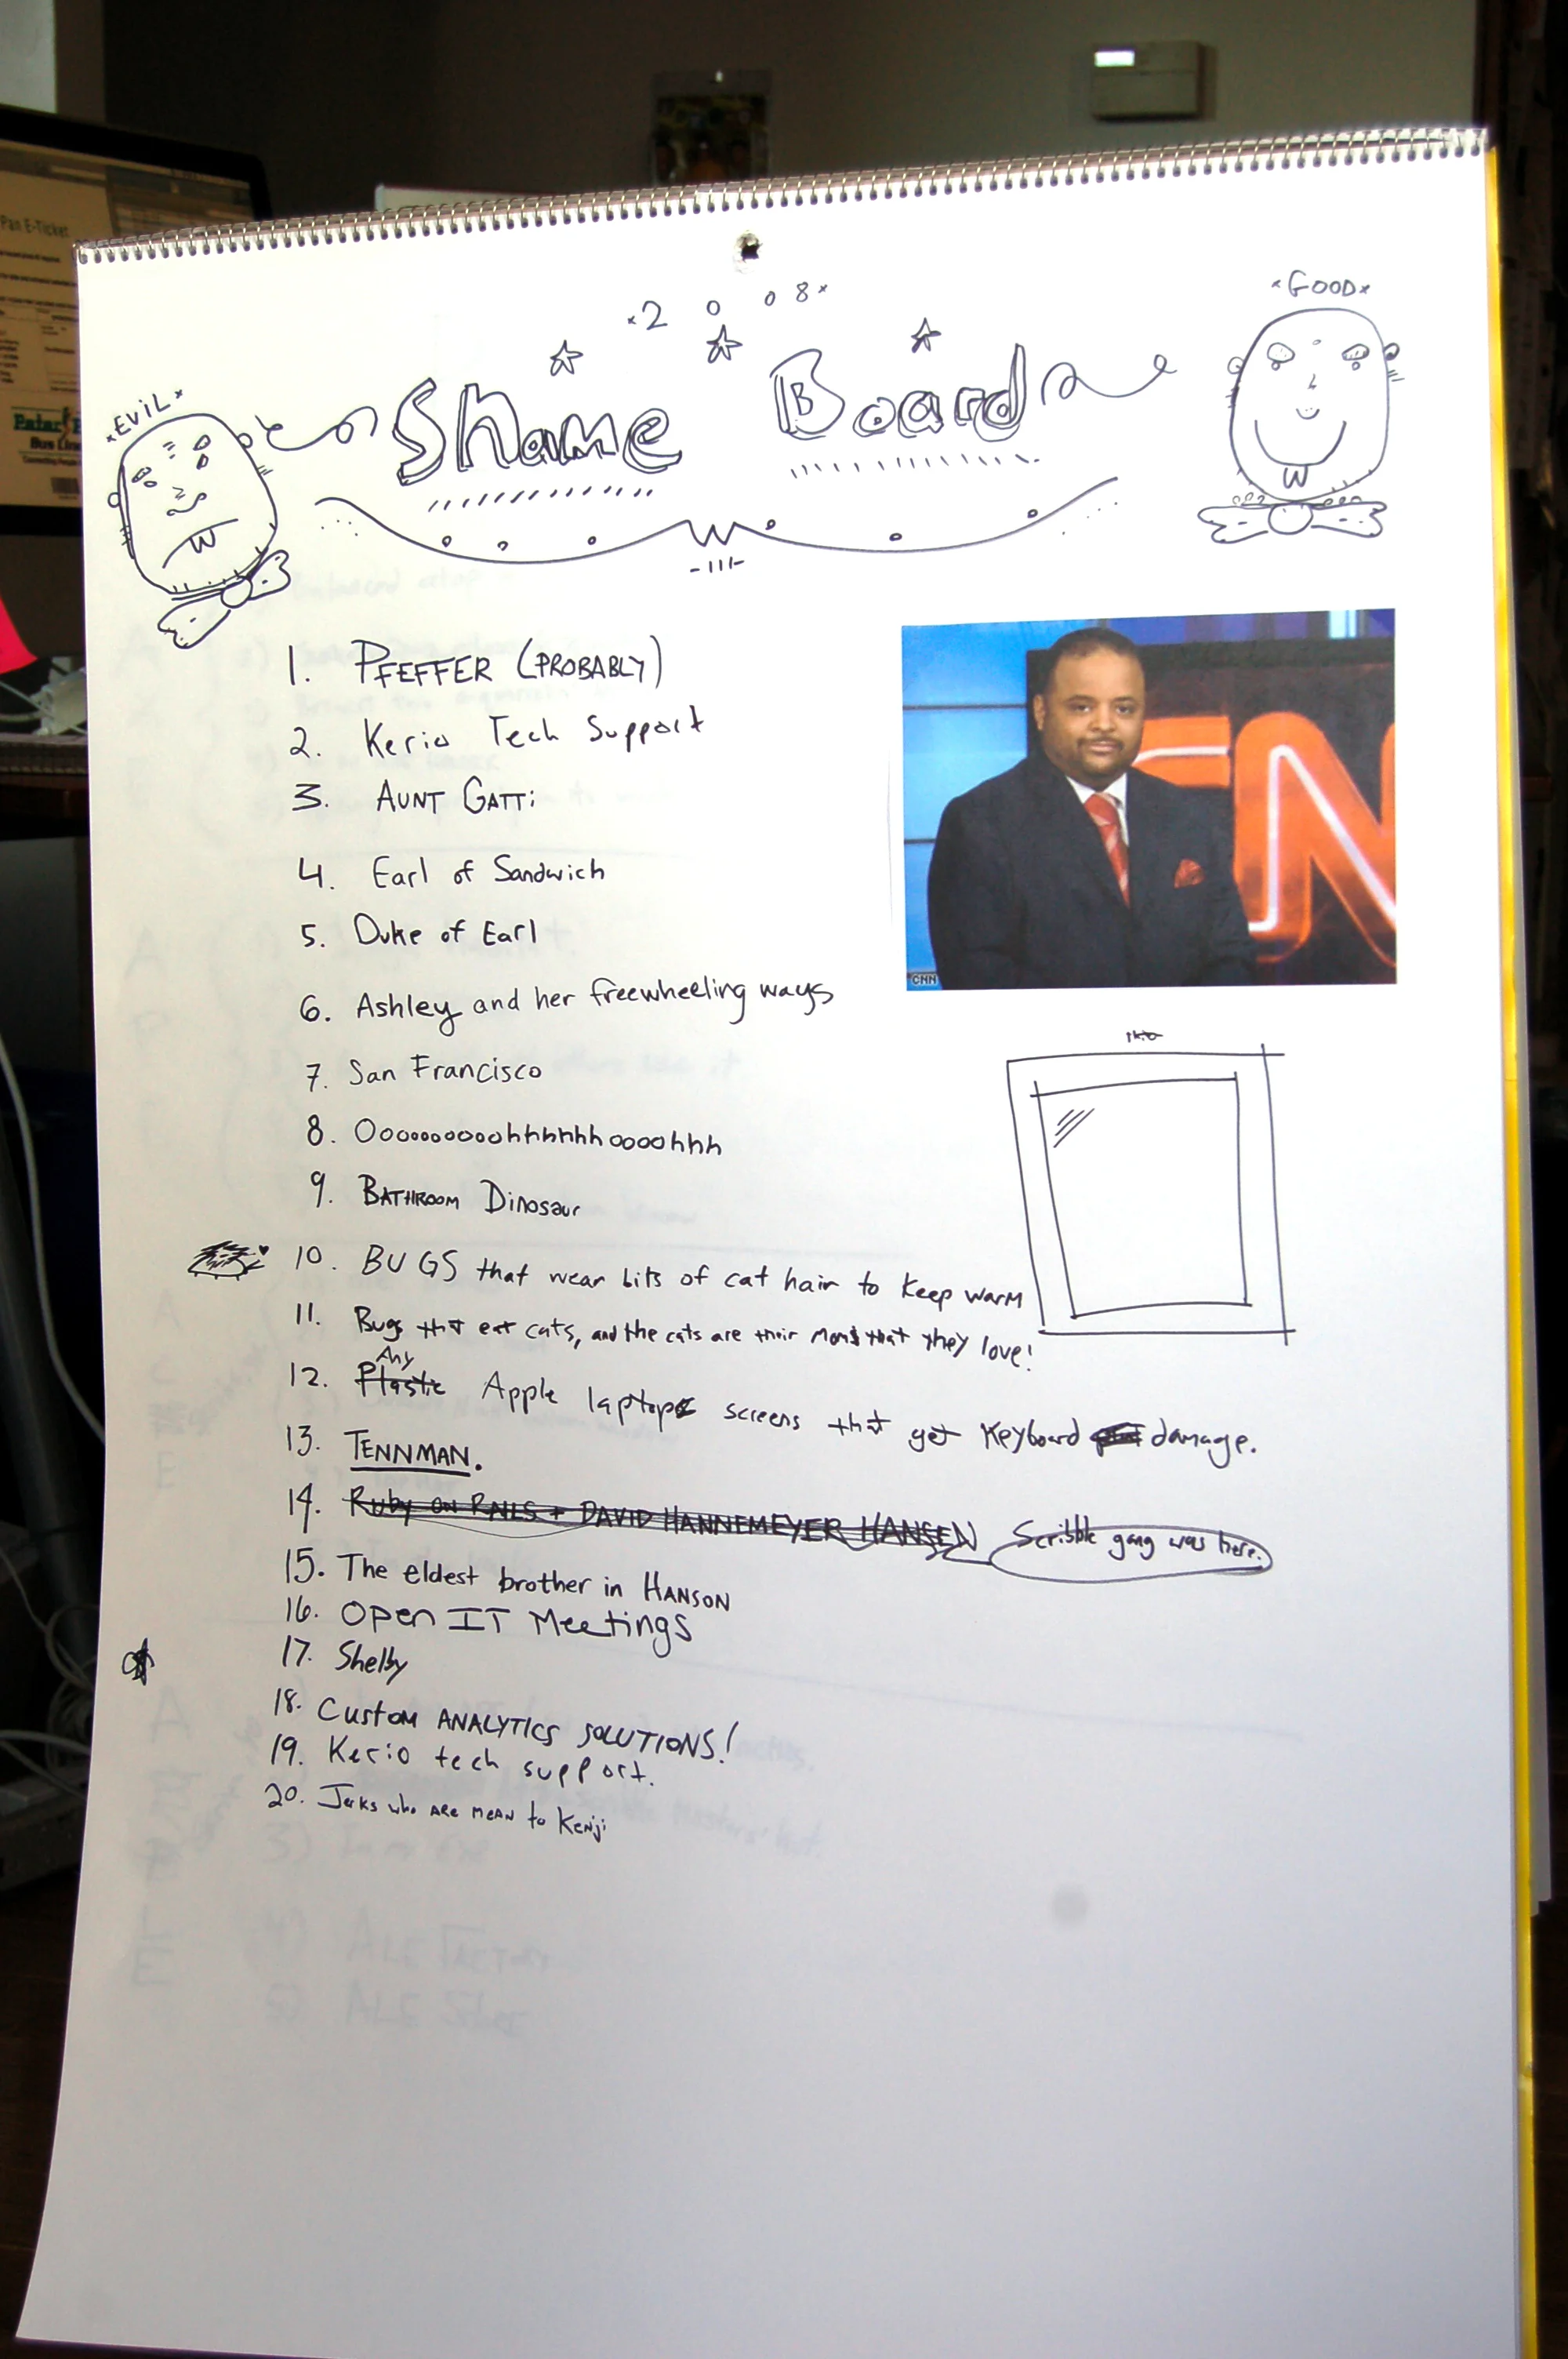 Pan E-Ticket
*2 0 0 8*
*EVIL*
*GOOD*
Shame Board
1. PFEFFER (PROBABLY)
2. Kerio Tech Support
3. AUNT GATTi
4. Earl of Sandwich
5. Duke of Earl
6. Ashley and her freewheeling ways
7. San Francisco
8. Oooooooooohhhhhhhoooohhh
9. BATHROOM Dinosaur
10. BUGS that wear bits of cat hair to keep warm
11. Bugs that eat cats, and the cats are their moms that they love!
Any
12. Plastic Apple laptops screens that get keyboard damage.
13. TENNMAN.
14. Ruby on RAILS + DAVID HANNEMEYER HANSEN Scribble gang was here.
15. The eldest brother in HANSON
16. Open IT Meetings
17. Shelby
18. Custom ANALYTICS SOLUTIONS!
19. Kerio tech support.
20. Jerks who ARE MEAN to Kenji
CNN